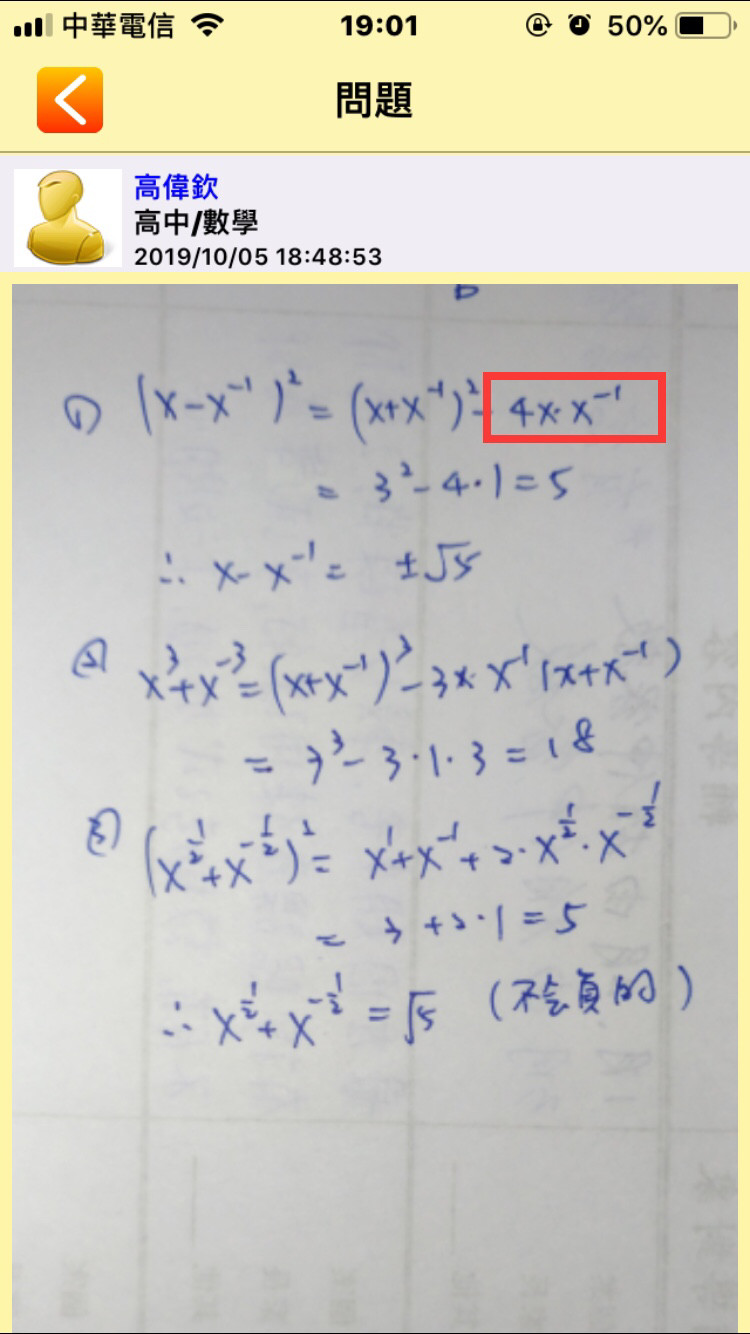 中華電信 19:01 50%
問題
高偉欽
高中/數學
2019/10/05 18:48:53
(1) (x-x⁻¹)² = (x+x⁻¹)² - 4x·x⁻¹
= 3² - 4·1 = 5
∴ x - x⁻¹ = ±√5
(2) x³+x⁻³ = (x+x⁻¹)³ - 3x·x⁻¹(x+x⁻¹)
= 3³ - 3·1·3 = 18
(3) (x^½+x^-½)² = x¹+x⁻¹+2·x^½·x^-½
= 3+2·1 = 5
∴ x^½+x^-½ = √5 (不會負的)